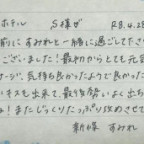 ホテル S様ゼ R8.4.28
前にすみれと一緒に過ごして下さい
ございました！最初からとても元気
サージ、気持ち良かったようで良かった
キスも出来て、最後勢いよく出ち
！またじっくりたっぷり攻めさせて
新橋 すみれ